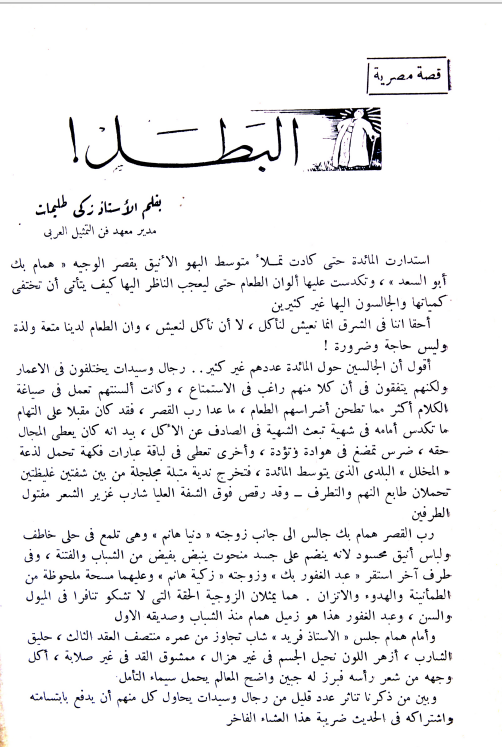 قصة مصرية
البَطَل!
بقلم الأستاذ زكى طليمات
مدير معهد فن التمثيل العربى
استدارت المائدة حتى كادت تملأ متوسط البهو الأنيق بقصر الوجيه « همام بك
أبو السعد » ، وتكدست عليها ألوان الطعام حتى ليعجب الناظر اليها كيف يتأتى أن تختفى
كمياتها والجالسون اليها غير كثيرين
أحقا اننا فى الشرق انما نعيش لنأكل ، لا أن نأكل لنعيش ، وان الطعام لدينا متعة ولذة
وليس حاجة وضرورة !
أقول أن الجالسين حول المائدة عددهم غير كثير . . رجال وسيدات يختلفون فى الاعمار
ولكنهم يتفقون فى أن كلا منهم راغب فى الاستمتاع ، وكانت ألسنتهم تعمل فى صياغة
الكلام أكثر مما تطحن أضراسهم الطعام ، ما عدا رب القصر ، فقد كان مقبلا على التهام
ما تكدس أمامه فى شهية تبعث الشهية فى الصادف عن الأكل ، بيد انه كان يعطى المجال
حقه ، ضرس تمضغ فى هوادة وتؤدة ، وأخرى تعطى فى لباقة عبارات فكهة تحمل لذعة
« المخلل » البلدى الذى يتوسط المائدة ، فتخرج ندية متبلة مجلجلة من بين شفتين غليظتين
تحملان طابع النهم والتطرف – وقد رقص فوق الشفة العليا شارب غزير الشعر مفتول
الطرفين
رب القصر همام بك جالس الى جانب زوجته « دنيا هانم » وهى تلمع فى حلى خاطف
ولباس أنيق محسود لانه ينضم على جسد منحوت ينبض بفيض من الشباب والفتنة ، وفى
طرف آخر استقر « عبد الغفور بك » وزوجته « زكية هانم » وعليهما مسحة ملحوظة من
الطمأنينة والهدوء والاتزان . هما يمثلان الزوجية الحقة التى لا تشكو تنافرا فى الميول
والسن ، وعبد الغفور هذا هو زميل همام منذ الشباب وصديقه الاول
وأمام همام جلس « الاستاذ فريد » شاب تجاوز من عمره منتصف العقد الثالث ، حليق
الشارب ، أزهر اللون نحيل الجسم فى غير هزال ، ممشوق القد فى غير صلابة ، أكل
وجهه من شعر رأسه فبرز له جبين واضح المعالم يحمل سيماء التأمل
وبين من ذكرنا تناثر عدد قليل من رجال وسيدات يحاول كل منهم أن يدفع بابتسامته
واشتراكه فى الحديث ضريبة هذا العشاء الفاخر